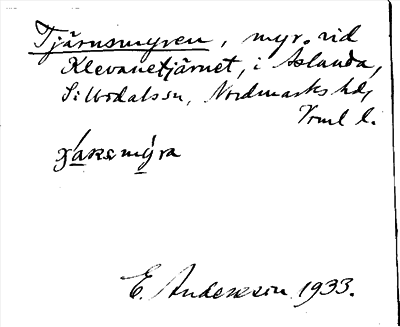 Tjärnsmyren, myr vid
Klevanetjärnet, i Aslanda,
Silbodals sn, Nordmarks hd,
Vrml l.
E. Andersson 1933.